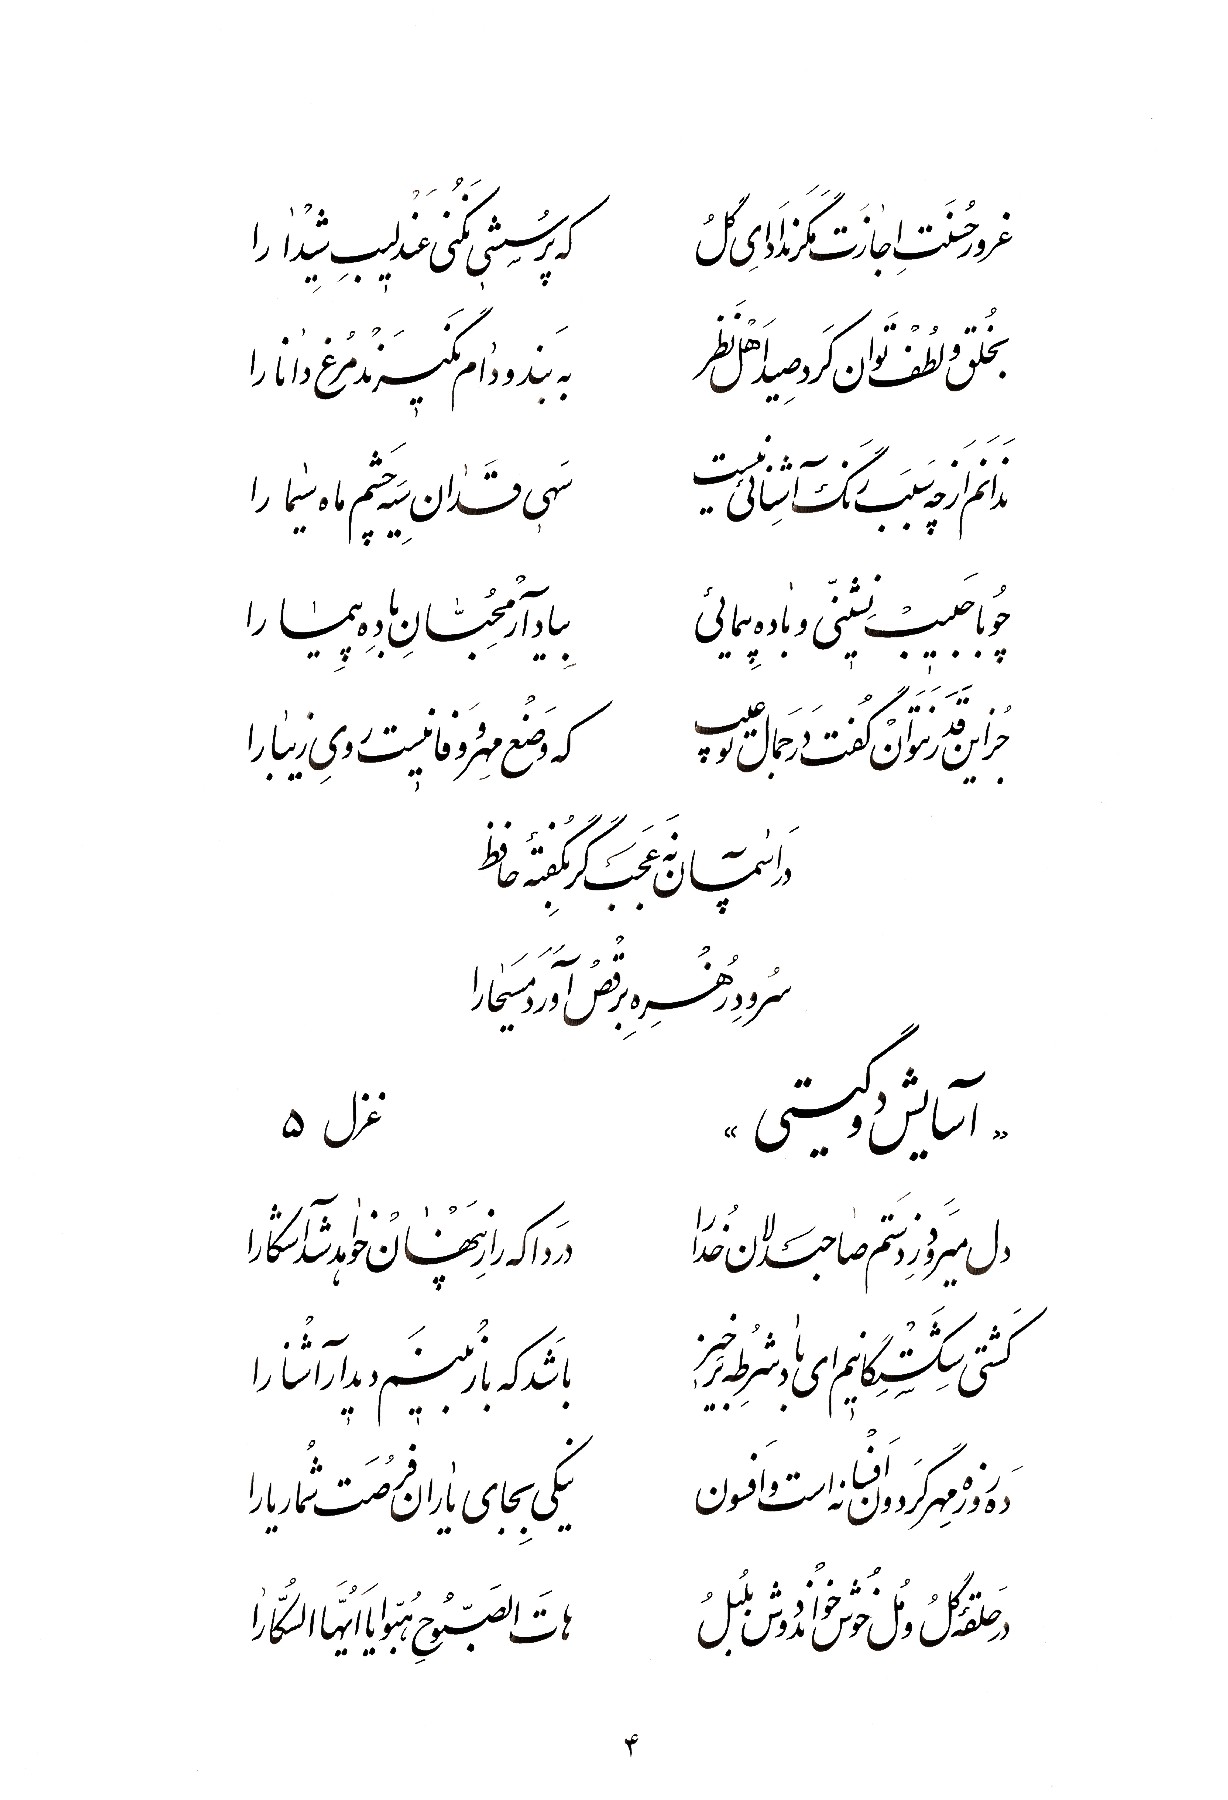 غرور حُسنَتِ اِجازَت مَگَر نَداد اِی گُل که پُرسِشی نَکُنی عَندَلیبِ شِیدا را
بخُلق و لُطف تَوان کَرد صِید اَهل نَظَر به بَند و دام نَگیرَند مُرغ دانا را
نَدانَم اَز چه سَبَب رَنگ آشنائی نیست سَهی قَدان سِیَه چَشم ماه سیما را
چُو با حَبیب نِشینی و باده پِیمائی بیاد آر مُحِبّانِ بادِه پِیما را
جُز این قَدَر نَتَوان گُفت دَر جَمال تو عِیب که وَضع مِهر و وَفا نیست رویِ زیبا را
دَر آسمان نَه عَجَب گَر بگُفتهٔ حافظ
سُرودِ زُهره بِرَقص آوَرَد مَسیحا را
«آسایش دو گیتی» غزل ۵
دل میرَوَد زِ دَستَم صاحبدلان خُدا را دَردا که رازِ پنهان خواهد شد آشکارا
کَشتی شِکَستِگانیم ای باد شُرطه بَرخیز باشَد که باز بینیم دیدار آشنا را
دَه روزه مِهر گَردون اَفسانه است و اَفسون نیکی بِجای یاران فُرصَت شُمار یارا
در حلقهٔ گُل و مُل خُوش خواند دوش بُلبُل هاتَ الصَبّوُحِ هُبّوا یا اَیُّهَا السُّکارا
۴